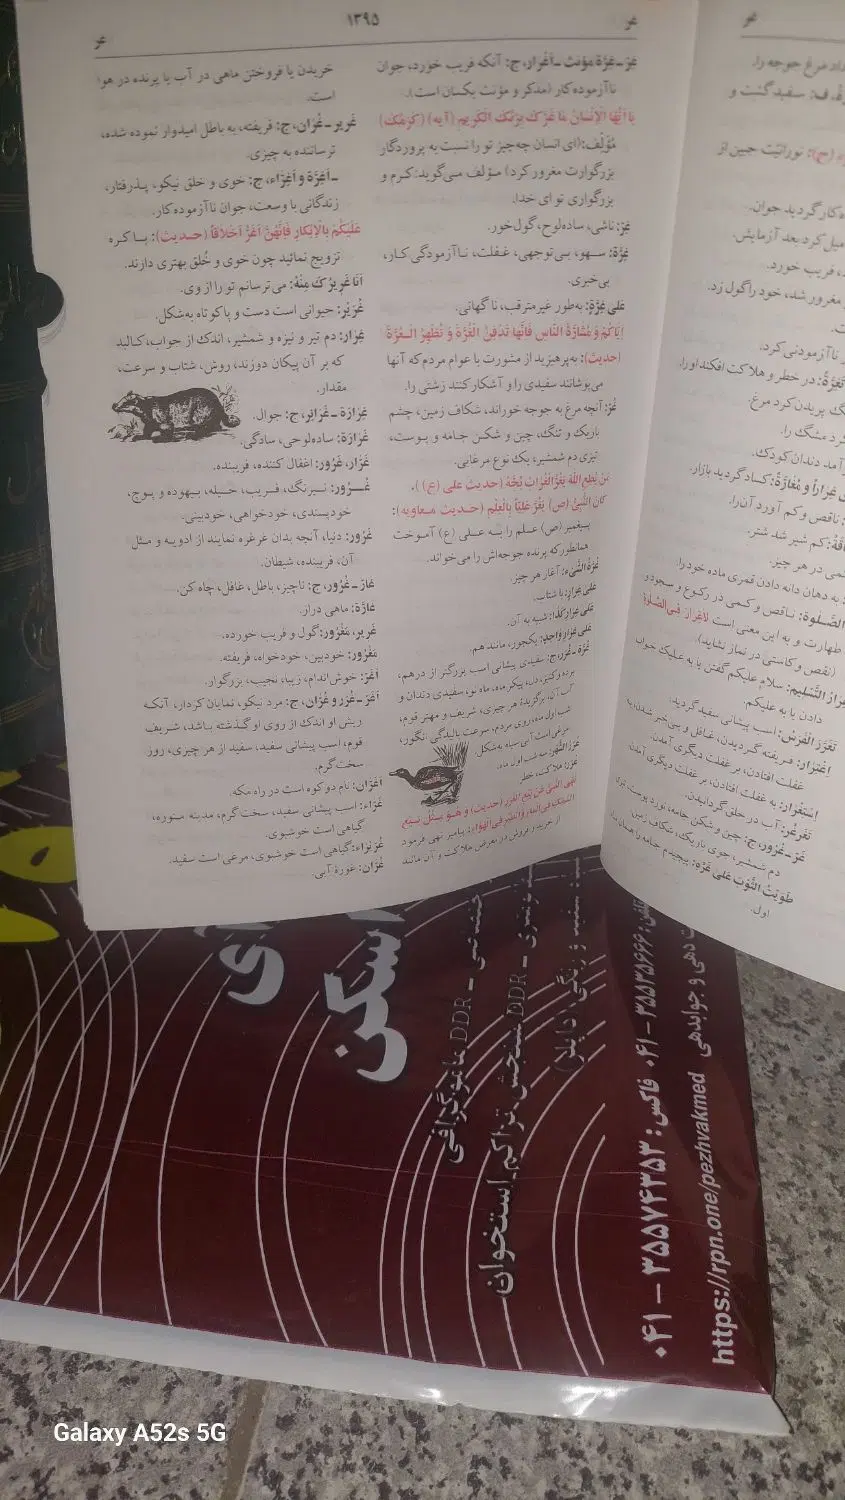 غر
۱۳۹۵
غر
غِرّ ـ غِرَّة مؤنث ـ اَغْرار، ج: آنکه فریب خورد، جوان
ناآزموده کار (مذکر و مؤنث یکسان است).
یا اَیُّهَا الْاِنْسانُ ما غَرَّکَ بِرَبِّکَ الْکَریمِ (آیه) (کَرَمُکَ)
مُؤَلِّف: (ای انسان چه‌چیز تو را نسبت به پروردگار
بزرگوارت مغرور کرد) مؤلف می‌گوید: کرم و
بزرگواری تو ای خدا.
غِرّ: ناشی، ساده‌لوح، گول‌خور.
غِرَّة: سهو، بی‌توجهی، غفلت، ناآزمودگی کار،
بی‌خبری.
عَلی غِرَّةٍ: به‌طور غیر مترقب، ناگهانی.
اِیّاکُمْ وَ مُشارَّةَ النّاسِ فَاِنَّها تَدْفِنُ الْغُرَّةَ وَ تُظْهِرُ الْعُرَّةَ
(حدیث): به‌پرهیزید از مشورت با عوام مردم که آنها
می‌پوشانند سفیدی را و آشکار کنند زشتی را.
غَرّ: آنچه مرغ به جوجه خوراند، شکاف زمین، چشم
باریک و تنگ، چین و شکن جامه و پوست،
تیزی دم شمشیر، یک نوع مرغابی.
مَنْ یُطِعِ اللّهَ یَغُرُّهُ الْغُرابُ بُحَّهُ (حدیث علی (ع)).
کانَ النَّبِیُّ (ص) یَغُرُّ عَلِیّاً بِالْعِلْمِ (حدیث معاویه):
پیغمبر (ص) علم را به علی (ع) آموخت
همانطور که پرنده جوجه‌اش را می‌خواند.
غُرَّةُ الشَّیْء: آغاز هر چیز.
عَلی غِرارٍ: با شتاب.
عَلی غِرارِ کَذا: شبیه به آن.
عَلی غِرارٍ واحِدٍ: یکجور، مانند هم.
غُرَّة ـ غُرَر، ج: سفیدی پیشانی اسب بزرگتر از درهم،
برده و کنیز، دل، پیکر ماه، ماه نو، سفیدی دندان و
آب آن، برگزیدهٔ هر چیزی، شریف و مهتر قوم،
شب اول ماه، روی مردم، سرعت بالیدگی انگور،
مرغی است آبی سیاه به‌شکل.
غُرَرُ الشَّهْر: سه شب اول ماه.
غَرَر: هلاکت، خطر.
نَهَی النَّبِیُّ عَنْ بَیْعِ الْغَرَرِ (حدیث) وَ هُوَ مِثْلُ بَیْعِ
السَّمَکِ فِی الْماءِ وَ الطَّیْرِ فِی الْهَواءِ: پیامبر نهی فرمود
از خرید و فروش در معرض هلاکت و آن مانند
خریدن یا فروختن ماهی در آب یا پرنده در هوا
است.
غَریر ـ غُرّان، ج: فریفته، به باطل امیدوار نموده شده،
ترساننده به چیزی.
ـ اَغِرَّة و اَغِرّاء، ج: خوی و خلق نیکو، پذرفتار،
زندگانی با وسعت، جوان ناآزموده کار.
عَلَیْکُمْ بِالْاَبْکارِ فَاِنَّهُنَّ اَغَرُّ اَخْلاقاً (حدیث): با کره
تزویج نمائید چون خوی و خُلق بهتری دارند.
اَنَا غَریرُکَ مِنْهُ: می‌ترسانم تو را از وی.
غُرَیْر: حیوانی است دست و پا کوتاه به‌شکل.
غِرار: دم تیر و نیزه و شمشیر، اندک از خواب، کالبد
که بر آن پیکان دوزند، روش، شتاب و سرعت،
مقدار.
غِرارَة ـ غَرائر، ج: جوال.
غَرارَة: ساده‌لوحی، سادگی.
غَرّار، غَرُور: اغفال کننده، فریبنده.
غُرُور: نیرنگ، فریب، حیله، بیهوده و پوچ،
خودپسندی، خودخواهی، خودبینی.
غَرُور: دنیا، آنچه بدان غرغره نمایند از ادویه و مثل
آن، فریبنده، شیطان.
غارّ ـ غُرُور، ج: ناچیز، باطل، غافل، چاه کن.
غارَّة: ماهی دراز.
غَریر، مَغْرُور: گول و فریب خورده.
مَغْرُور: خودبین، خودخواه، فریفته.
اَغَرّ: خوش‌اندام، زیبا، نجیب، بزرگوار.
اَغَرّ ـ غُرَر و غُرّان، ج: مرد نیکو، نمایان کردار، آنکه
ریش او اندک از روی او گذشته باشد، شریف
قوم، اسب پیشانی سفید، سفید از هر چیزی، روز
سخت گرم.
اَغَرّان: نام دو کوه است در راه مکه.
غَرّاء: اسب پیشانی سفید، سخت گرم، مدینه منوره،
گیاهی است خوشبوی.
غُرَیْراء: گیاهی است خوشبوی، مرغی است سفید.
غُرّان: غورهٔ آبی.
غر
داد مرغ جوجه را.
ف: سفید گشت و
(ج): نورانیّت جبین از
ه کار گردید جوان.
میل کرد بعد آزمایش.
فریب خورد.
مغرور شد، خود را گول زد.
ناآزمودنی کرد.
تَغِرَّةً: در خطر و هلاکت افکند او را.
پریدن کرد مرغ.
کرد مشگ را.
آمد دندان کودک.
غِراراً و مُغارَّةً: کساد گردید بازار.
ناقص و کم آورد آن را.
کم شیر شد شتر.
می در هر چیز.
به دهان دانه دادن قمری ماده خود را.
الصَّلوة: ناقص و کمی در رکوع و سجود و
طهارت و به این معنی است لاغِرارَ فِی الصَّلوة
(نقص و کاستی در نماز نشاید).
غِرارُ التَّسْلیم: سلام علیکم گفتن یا به علیک جواب
دادن یا به علیکم.
تَغَرَّرَ الْفَرَس: اسب پیشانی سفید گردید.
اِغْتِرار: فریفته گردیدن، غافل و بی‌خبر شدن، به
غفلت افتادن، بر غفلت دیگری آمدن.
اِسْتِغْرار: به غفلت افتادن، بر غفلت دیگری آمدن
تَغَرْغُر: آب در حلق گردانیدن.
غَرّ ـ غُرُور، ج: چین و شکن جامه، نورد پوست، تیزی
دم شمشیر، جوی باریک، شکاف زمین.
طَوَیْتُ الثَّوْبَ عَلی غَرِّهِ: پیچیدم جامه را همان تا
اول.
اسکن
DDR ماموگرافی
DDR سنجش تراکم استخوان
رنگی (داپلر)
۰۴۱ – ۳۵۵۷۴۳۵۳ : فاکس ۰۴۱ – ۳۵۵۳۵۶۶۶ :تلفن
https://rpn.one/pezhvakmed دهی و جوابدهی
Galaxy A52s 5G